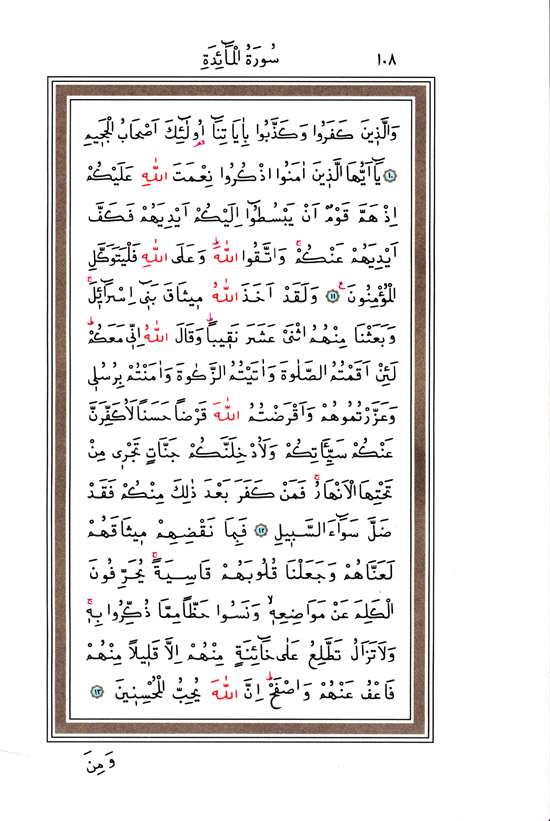 سُورَةُ الْمَٓائِدَةِ ١٠٨
وَالَّذ۪ينَ كَفَرُوا وَكَذَّبُوا بِاٰيَاتِنَٓا اُو۬لٰٓئِكَ اَصْحَابُ الْجَح۪يمِ
﴿١٠﴾ يَٓا اَيُّهَا الَّذ۪ينَ اٰمَنُوا اذْكُرُوا نِعْمَتَ اللّٰهِ عَلَيْكُمْ
اِذْ هَمَّ قَوْمٌ اَنْ يَبْسُطُٓوا اِلَيْكُمْ اَيْدِيَهُمْ فَكَفَّ
اَيْدِيَهُمْ عَنْكُمْۚ وَاتَّقُوا اللّٰهَۜ وَعَلَى اللّٰهِ فَلْيَتَوَكَّلِ
الْمُؤْمِنُونَ۟ ﴿١١﴾ وَلَقَدْ اَخَذَ اللّٰهُ م۪يثَاقَ بَن۪ٓي اِسْرَٓائ۪لَۚ
وَبَعَثْنَا مِنْهُمُ اثْنَيْ عَشَرَ نَق۪يباًۜ وَقَالَ اللّٰهُ اِنّ۪ي مَعَكُمْۜ
لَئِنْ اَقَمْتُمُ الصَّلٰوةَ وَاٰتَيْتُمُ الزَّكٰوةَ وَاٰمَنْتُمْ بِرُسُل۪ي
وَعَزَّرْتُمُوهُمْ وَاَقْرَضْتُمُ اللّٰهَ قَرْضاً حَسَناً لَاُكَفِّرَنَّ
عَنْكُمْ سَيِّـَٔاتِكُمْ وَلَاُدْخِلَنَّكُمْ جَنَّاتٍ تَجْر۪ي مِنْ
تَحْتِهَا الْاَنْهَارُۚ فَمَنْ كَفَرَ بَعْدَ ذٰلِكَ مِنْكُمْ فَقَدْ
ضَلَّ سَوَٓاءَ السَّب۪يلِ ﴿١٢﴾ فَبِمَا نَقْضِهِمْ م۪يثَاقَهُمْ
لَعَنَّاهُمْ وَجَعَلْنَا قُلُوبَهُمْ قَاسِيَةًۚ يُحَرِّفُونَ
الْكَلِمَ عَنْ مَوَاضِعِه۪ۙ وَنَسُوا حَظاًّ مِمَّا ذُكِّرُوا بِه۪ۚ
وَلَا تَزَالُ تَطَّلِعُ عَلٰى خَٓائِنَةٍ مِنْهُمْ اِلَّا قَل۪يلاً مِنْهُمْ
فَاعْفُ عَنْهُمْ وَاصْفَحْۜ اِنَّ اللّٰهَ يُحِبُّ الْمُحْسِن۪ينَ ﴿١٣﴾
وَمِنَ